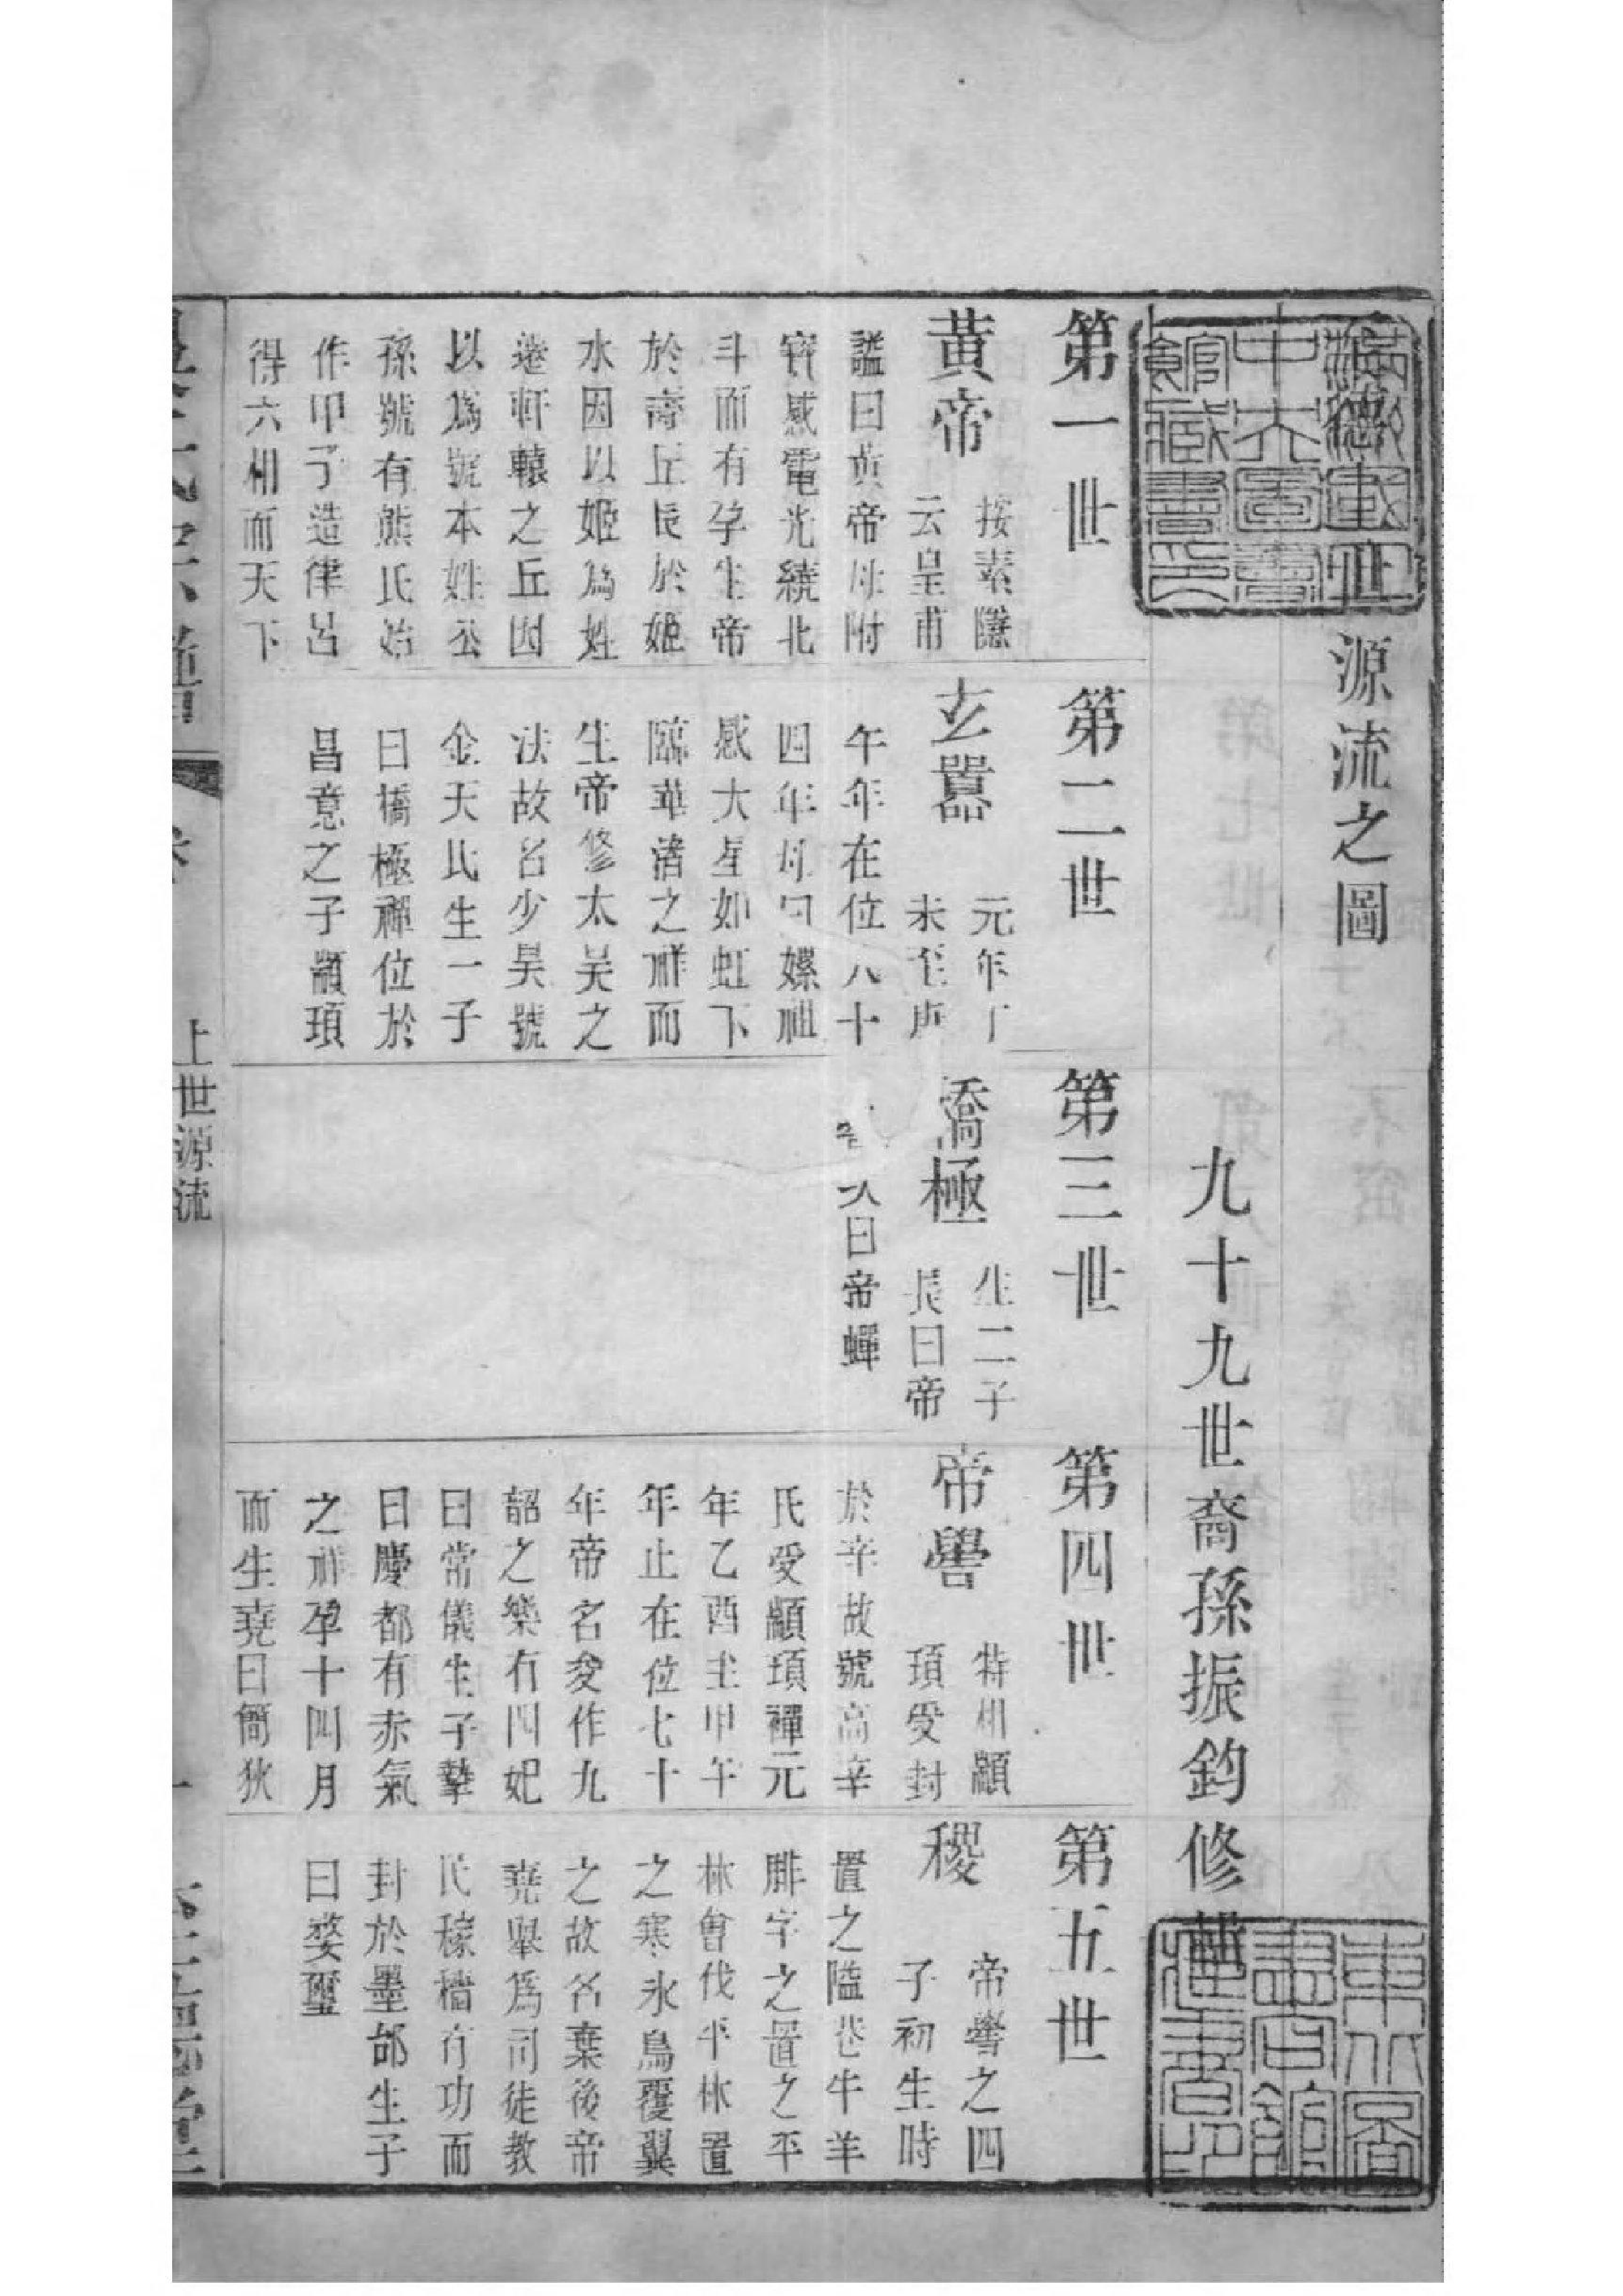 世源流之圖
九十九世裔孫振鈞修
第一世
黃帝
按素隱
云皇甫
謚曰黃帝母附
寳感電光繞北
斗而有孕生帝
於壽丘長於姬
水因以姬爲姓
遂軒轅之丘因
以爲號本姓公
孫號有熊氏始
作甲子造律呂
得六相而天下
第二世
玄囂
元年丁
未至庚
午年在位八十
四年母曰嫘祖
感大星如虹下
臨華渚之祥而
生帝修太昊之
法故名少昊號
金天氏生一子
曰橋極禪位於
昌意之子顓頊
第三世
僑極
生二子
長曰帝
嚳 次曰帝蟬
第四世
帝嚳
特相顓
頊受封
於辛故號高辛
氏受顓頊禪元
年乙酉至甲午
年止在位七十
年帝名夋作九
韶之樂有四妃
曰常儀生子摯
曰慶都有赤氣
之祥孕十四月
而生堯曰簡狄
第五世
稷
帝嚳之四
子初生時
置之隘巷牛羊
腓字之置之平
林會伐平林置
之寒氷鳥覆翼
之故名棄後帝
堯舉爲司徒教
民稼穡有功而
封於墨邰生子
曰婺璽
上世源流
一